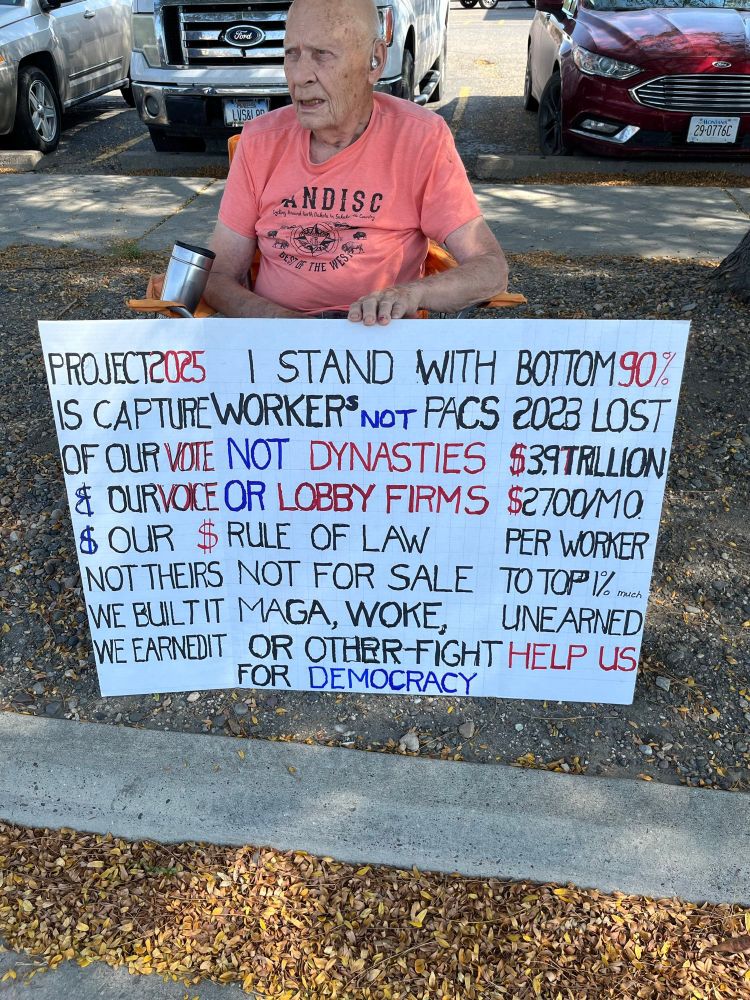 Ford
Ford
MONTANA
29-0776C
ANDISC
Cycling Around North Dakota In
BEST OF THE WEST
PROJECT2025
IS CAPTURE
OF OUR VOTE
& OUR VOICE
$ OUR $
NOT THEIRS
WE BUILT IT
WE EARNED IT
I STAND WITH
WORKERS NOT PACS
NOT DYNASTIES
OR LOBBY FIRMS
RULE OF LAW
NOT FOR SALE
MAGA, WOKE,
OR OTHER-FIGHT
FOR DEMOCRACY
BOTTOM 90%
2023 LOST
$3.9TRILLION
$2700/MO.
PER WORKER
TO TOP 1% much
UNEARNED
HELP US